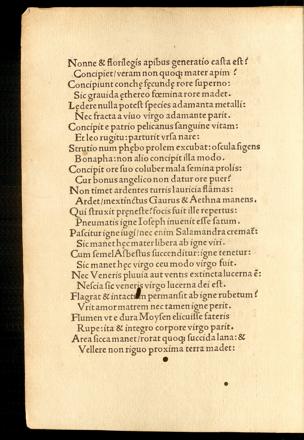 Nonne & florilegis apibus generatio casta est?
Concipiet/veram non quoq; mater apim?
Concipiunt conchę fęcundę rore superno:
Sic grauida ęthereo fœmina rore madet.
Lędere nulla potest species adamanta metalli:
Nec fracta a viuo virgo adamante parit.
Concipit e patrio pelicanus sanguine vitam:
Et leo rugitu: parturit vrsa nare:
Strutio num phębo prolem excubat: oscula figens
Bonapha: non alio concipit illa modo.
Concipit ore suo coluber mala semina prolis:
Cur bonus angelico non datur ore puer?
Non timet ardentes turris lauricia flāmas:
Ardet/inextinctus Gaurus & Aethna manens.
Qui struxit pręneste/focis fuit ille repertus:
Pneumatis igne Ioseph inuenit esse satum.
Pascitur igne iugi/nec enim Salamandra cremat:
Sic manet hęc mater libera ab igne viri.
Cum semel Asbestus succenditur: igne tenetur:
Sic manet hęc virgo ceu modo virgo fuit.
Nec Veneris pluuia aut ventis extincta lucerna ē:
Nescia sic veneris virgo lucerna dei est.
Flagrat & intactum permansit ab igne rubetum?
Vrit amor matrem nec tamen igne perit.
Flumen vt e dura Moysen elicuisse fateris
Rupe: ita & integro corpore virgo parit.
Area sicca manet/rorat quoq; succida lana: &
Vellere non riguo proxima terra madet: